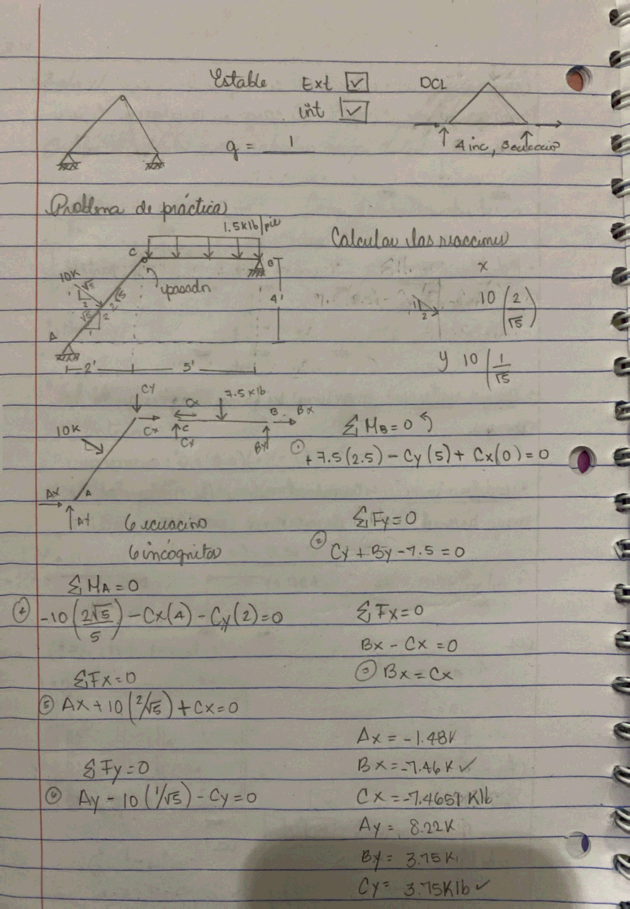 Estable Ext ☑
int ☑
DCL
g = 1
4 inc, 3 ecuacion
Problema de práctica
1.5 klb/pie
Calcular las reacciones
C
B
10K
√5
1
2
√5
2√5
2
1
pasador
4'
A
2'
5'
x
10 (2/√5)
1
2
y 10 (1/√5)
Cy
Cx
7.5 klb
B Bx
10K
Cx
C
Cx
By
ΣMB=0
① +7.5(2.5) - Cy(5) + Cx(0) = 0
Ax
A
Ay
6 ecuacino
6 incógnita
ΣFy=0
② Cy + By - 7.5 = 0
ΣMA=0
④ -10(2√5/5) - Cx(4) - Cy(2) = 0
ΣFx=0
Bx - Cx = 0
③ Bx = Cx
ΣFx=0
⑤ Ax + 10(2/√5) + Cx = 0
ΣFy=0
⑥ Ay - 10(1/√5) - Cy = 0
Ax = -1.48K
Bx = -7.46K ✓
Cx = -7.4651 Klb
Ay = 8.22K
By = 3.75K
Cy = 3.75Klb ✓